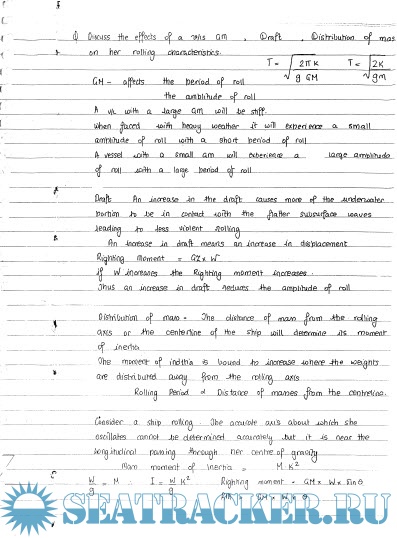 Q Discuss the effects of a vsls GM , Draft , Distribution of mass
on her rolling characteristics.
T = √ 2πK / g GM T = √ 2K / gm
GM - affects the period of roll
the amplitude of roll
A vsl with a large GM will be stiff.
when faced with heavy weather it will experience a small
amplitude of roll with a short period of roll
A vessel with a small GM will experience a large amplitude
of roll with a large period of roll
Draft An increase in the draft causes more of the underwater
portion to be in contact with the flatter subsurface waves
leading to less violent rolling
An increase in draft means an increase in displacement
Righting Moment = GZ x W
if W increases the Righting moment increases.
Thus an increase in draft reduces the amplitude of roll
Distribution of mass = The distance of mass from the rolling
axis or the centerline of the ship will determine its moment
of inertia
The moment of inertia is bound to increase where the weights
are distributed away from the rolling axis
Rolling Period α Distance of masses from the centreline.
Consider a ship rolling. The accurate axis about which she
oscillates cannot be determined accurately but it is near the
longitudinal passing through her centre of gravity
Mass moment of inertia = M K²
W/g = M ∴ I = W/g K² Righting moment = GM x W x Sinθ
= GM x W x θ
SEATRACKER.RU